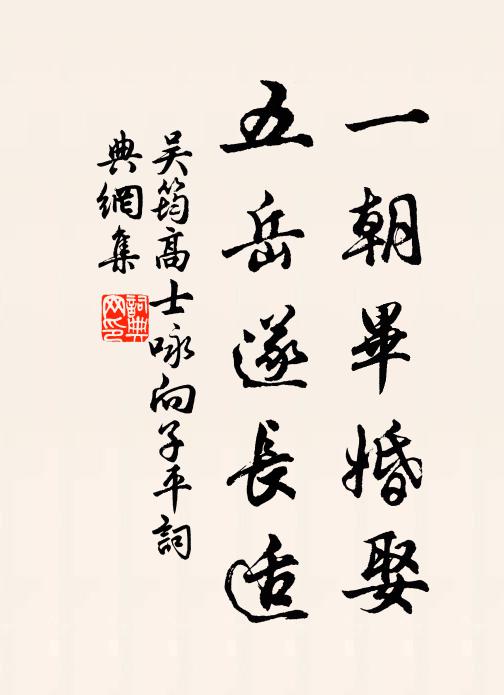 一朝畢婚娶
五岳遂長适
吴筠高士咏向子平詞
典網集
詞典網印